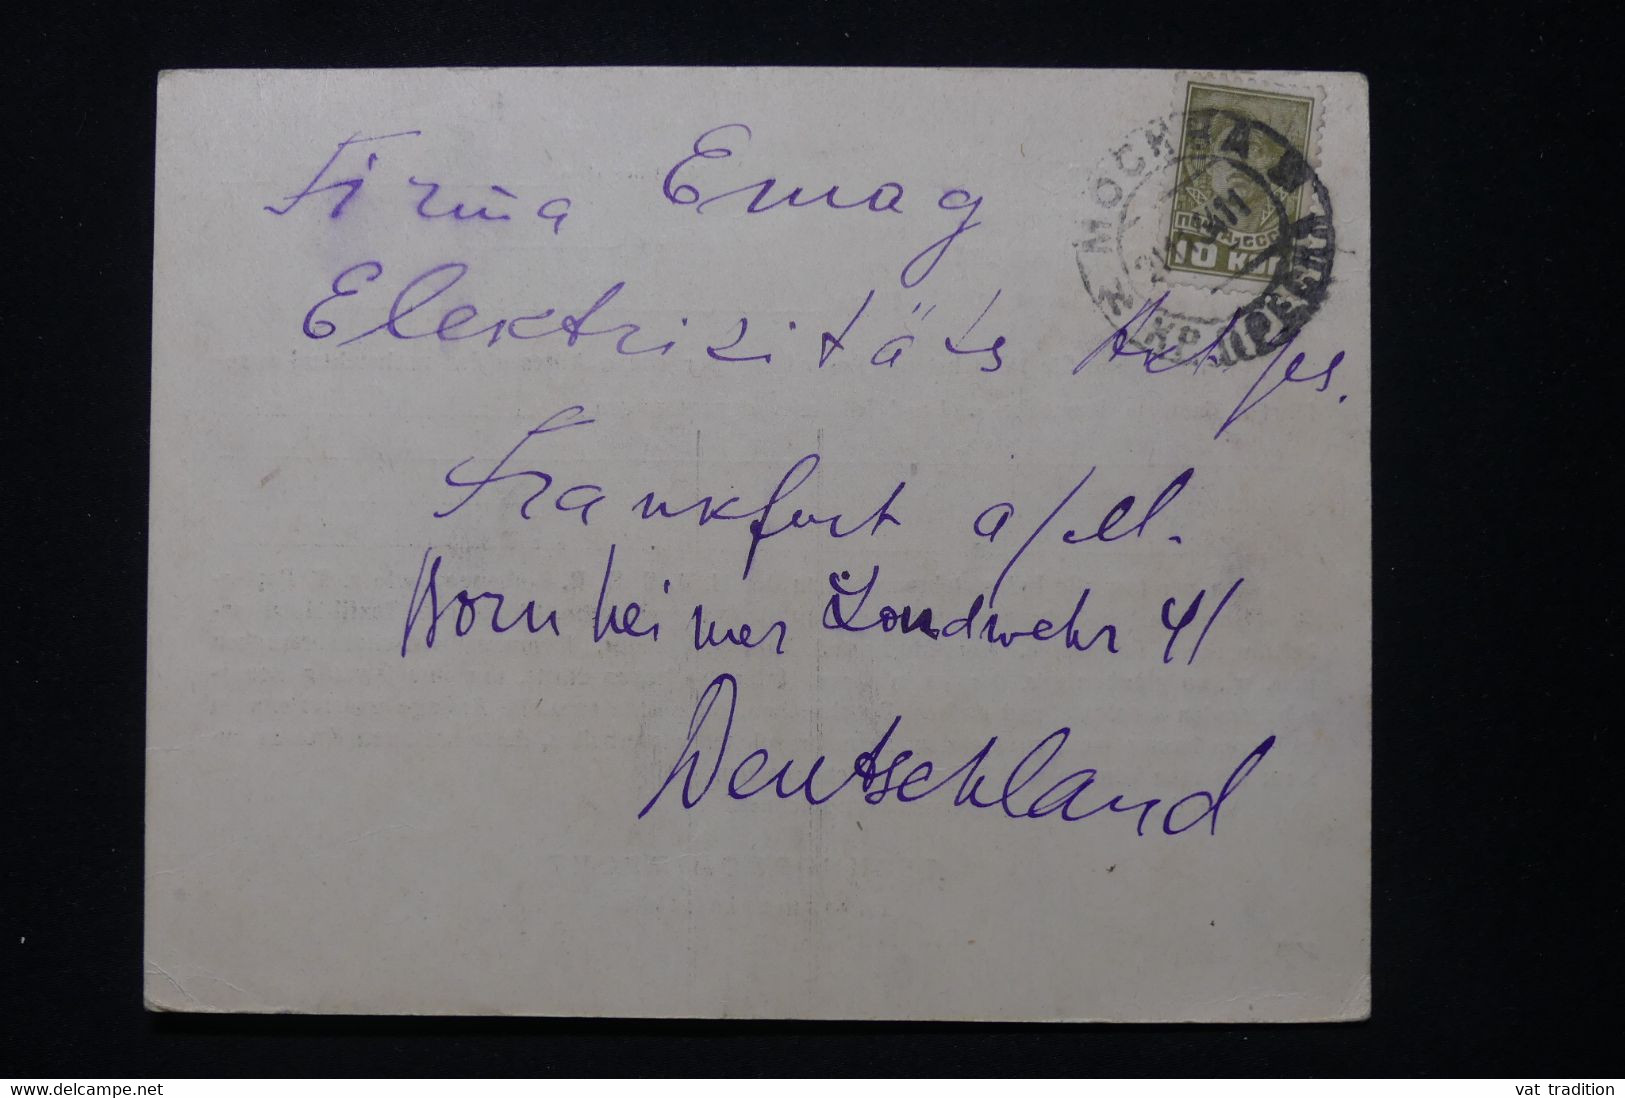 МОСКВА
10 КОП.
Firma Emag
Elektrizitäts Aktges.
Frankfurt a/M.
Bornheimer Landwehr 41
Deutschland
www.delcampe.net
vat tradition